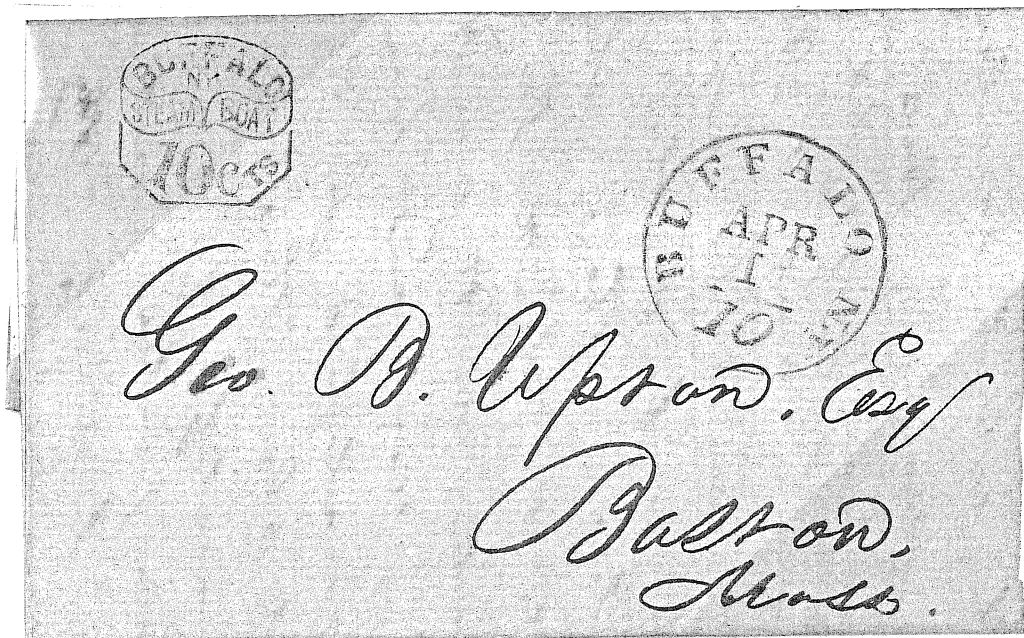 BUFFALO
N.Y.
STEAM BOAT
10 CTS
BUFFALO N.Y.
APR
1
10
Geo. B. Upton, Esq
Boston,
Mass.